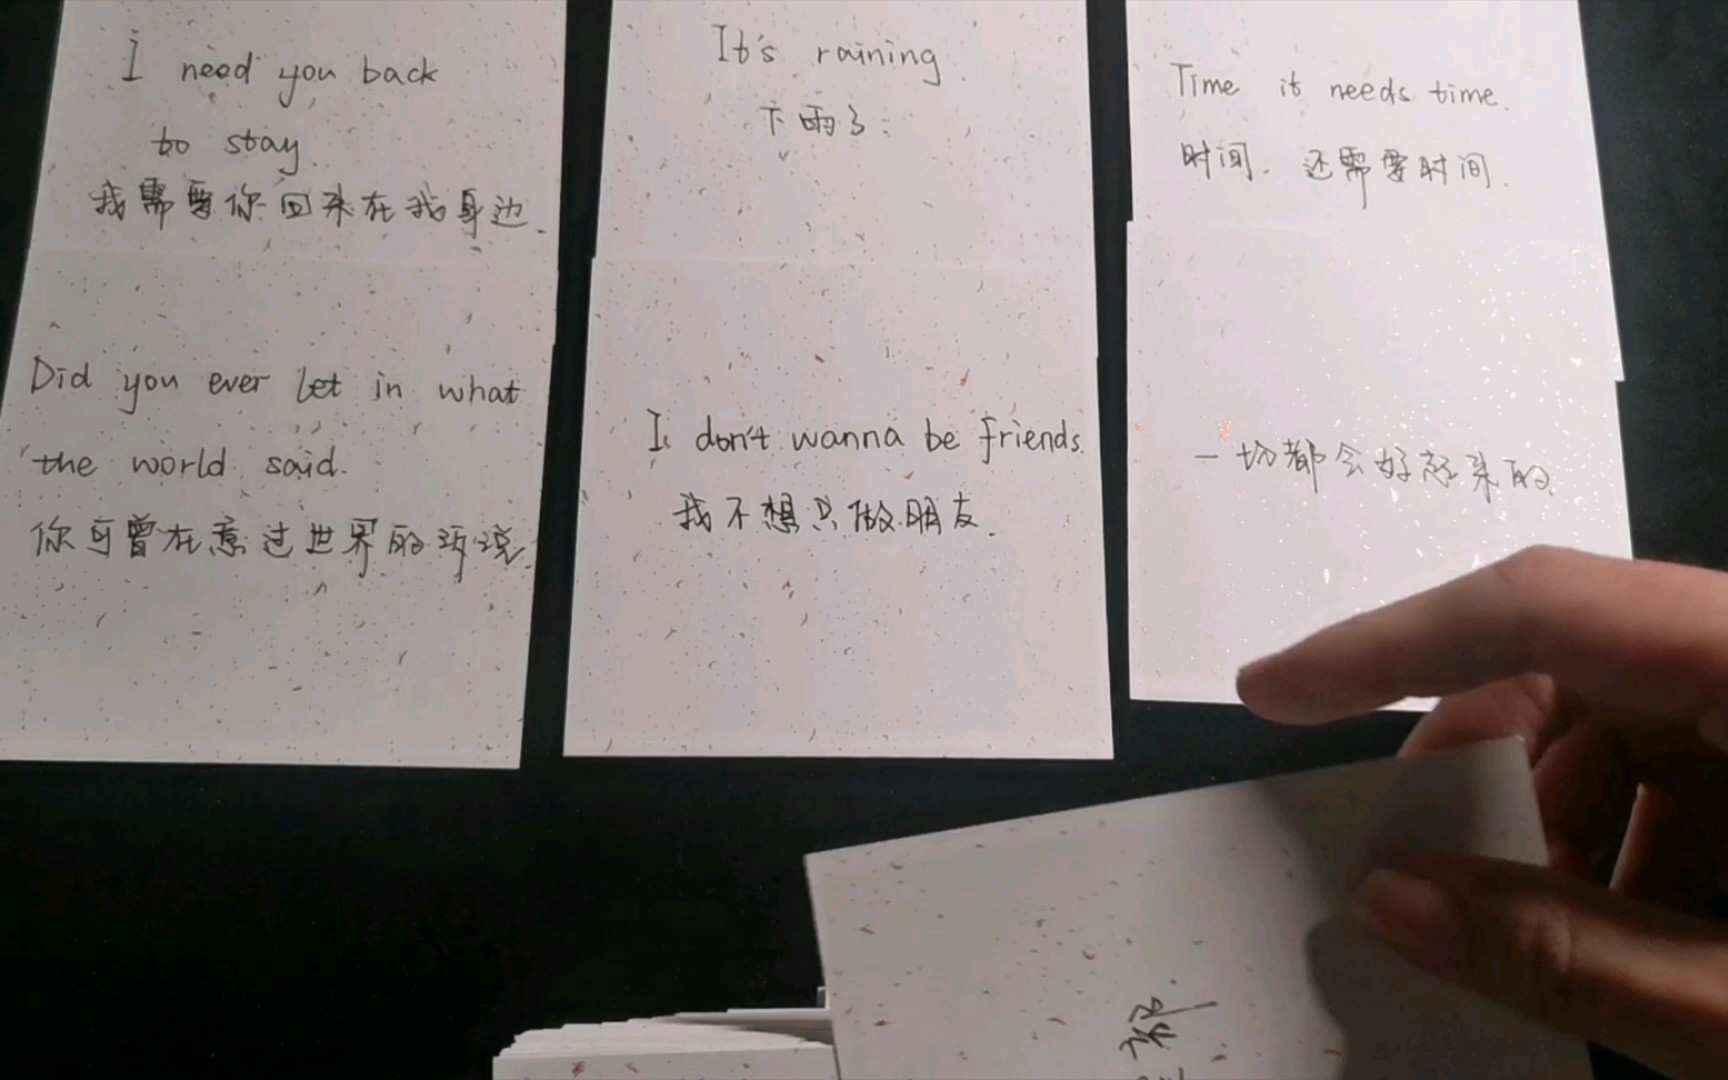 I need you back
to stay
我需要你回来在我身边.
It's raining
下雨了
Time it needs time.
时间. 还需要时间.
Did you ever let in what
the world said.
你可曾在意过世界的诉说
I don't wanna be friends.
我不想只做朋友.
一切都会好起来的